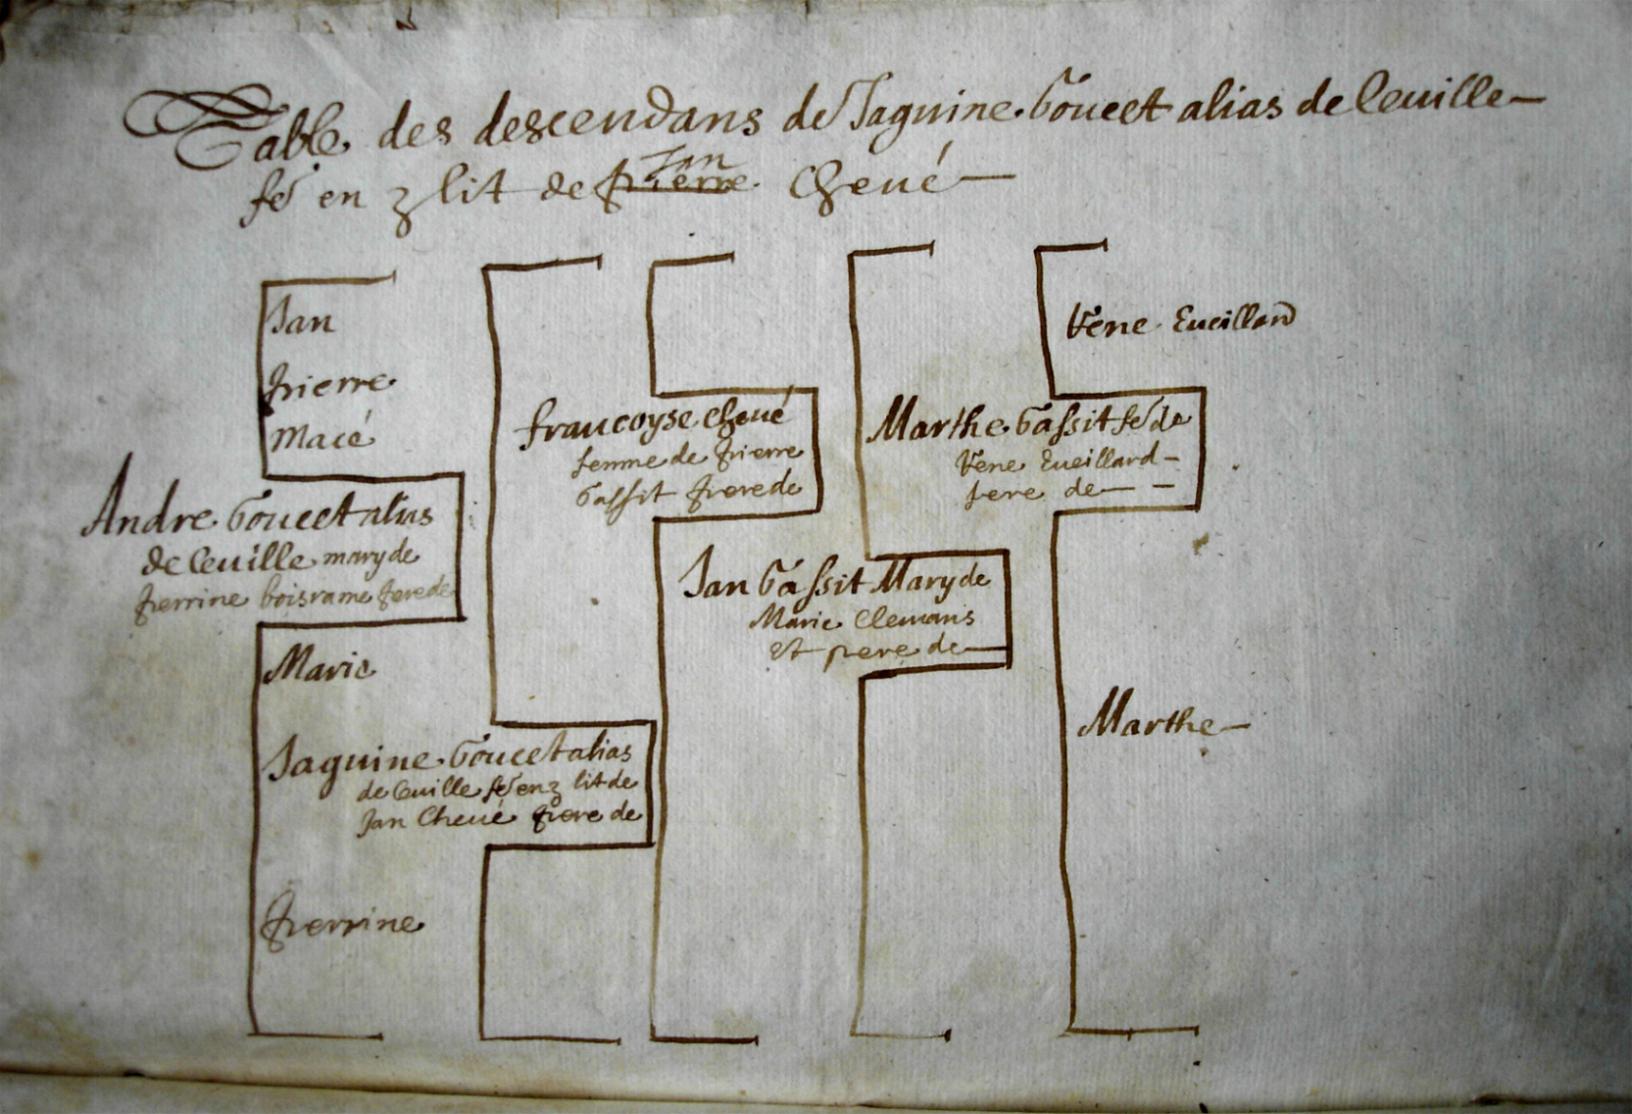 Table des descendans de Jaquine Goucet alias de Ceuille
fe en 2 lit de Jan Cheué
Jan
Pierre
Macé
Andre Goucet alias
de Ceuille mary de
Perrine boisrame pere de
Marie
Jaquine Goucet alias
de Ceuille fe en 2 lit de
Jan Cheué mere de
Perrine
francoyse Cheué
femme de Pierre
Gassit mere de
Jan Gassit Mary de
Marie Clemans
Et pere de
Marthe Gassit fe de
Rene Eueillard
pere de
Rene Eueillard
Marthe